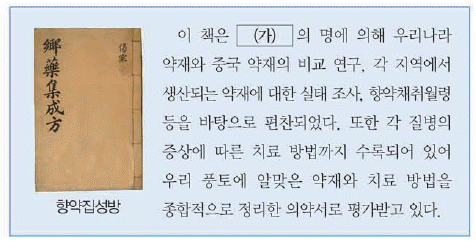 鄕藥集成方
傷寒
향약집성방
이 책은 (가) 의 명에 의해 우리나라
약재와 중국 약재의 비교 연구, 각 지역에서
생산되는 약재에 대한 실태 조사, 향약채취월령
등을 바탕으로 편찬되었다. 또한 각 질병의
증상에 따른 치료 방법까지 수록되어 있어
우리 풍토에 알맞은 약재와 치료 방법을
종합적으로 정리한 의약서로 평가받고 있다.